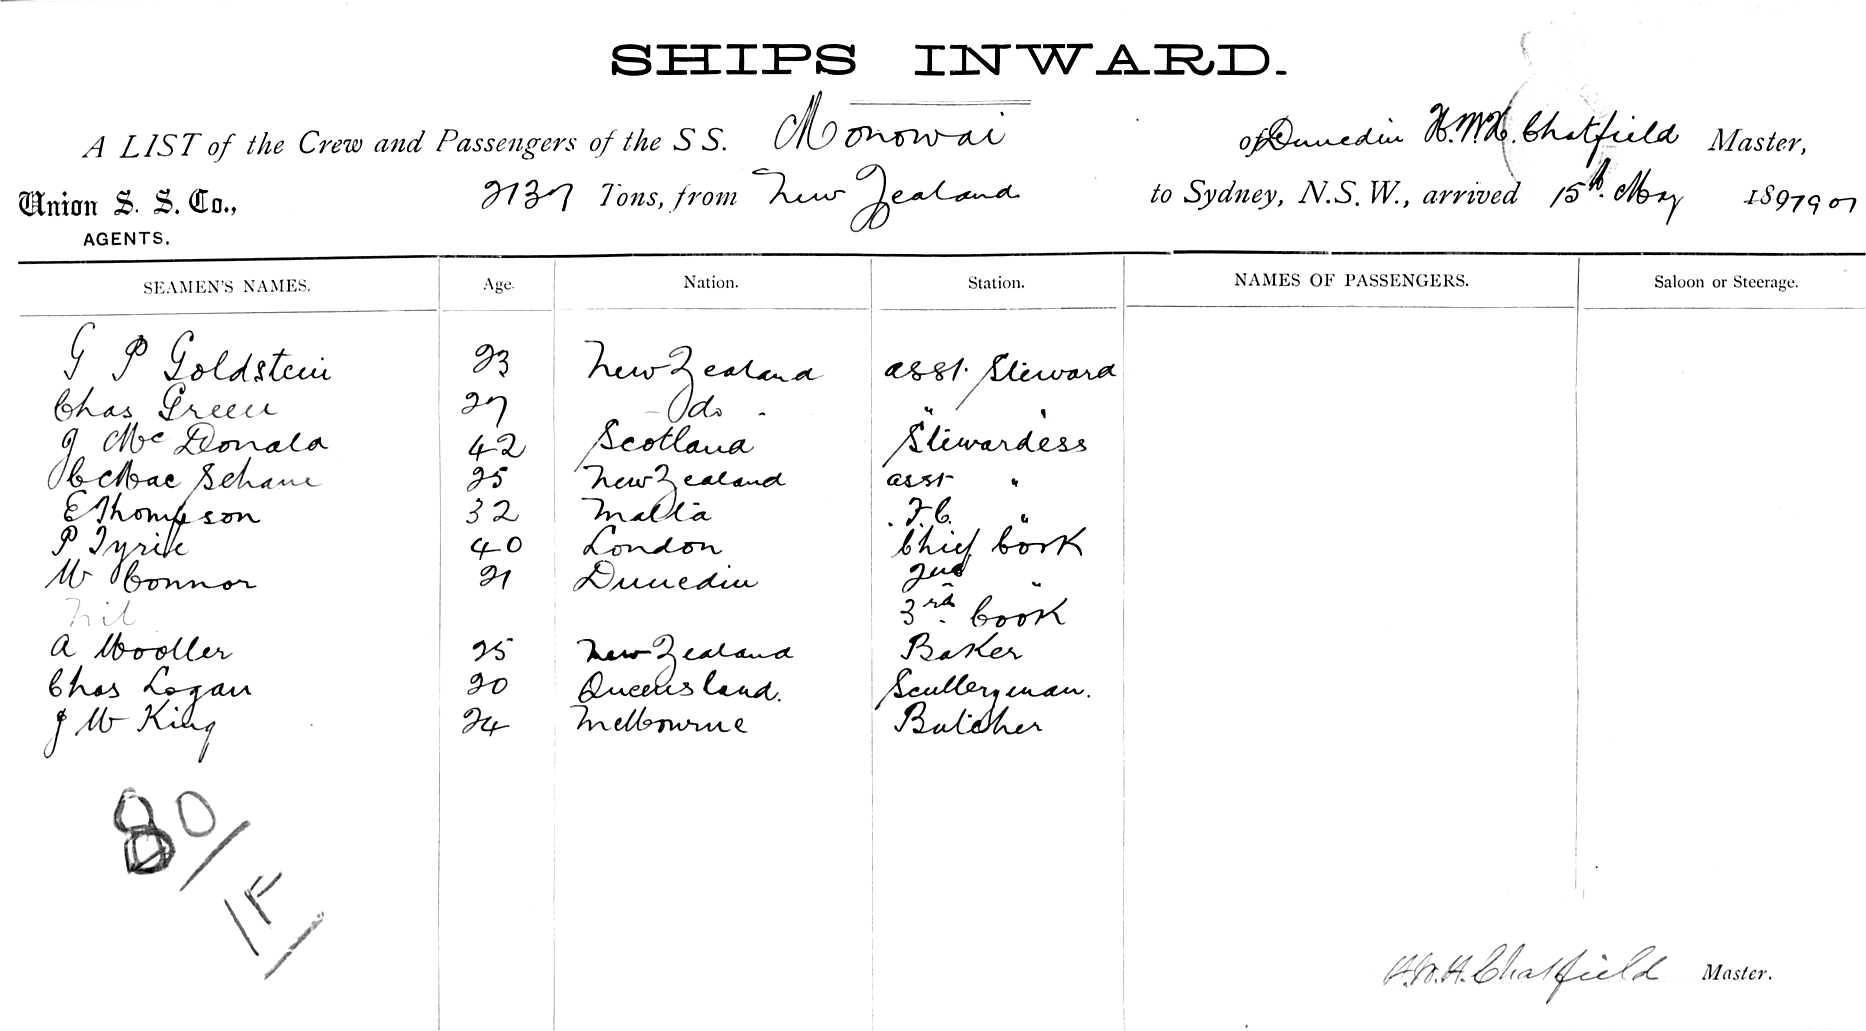 SHIPS INWARD.
A LIST of the Crew and Passengers of the S S. Monowai of Dunedin H. W. H. Chatfield Master,
Union S. S. Co., 2137 Tons, from New Zealand to Sydney, N.S.W., arrived 15th. May
AGENTS.
SEAMEN'S NAMES. Age. Nation. Station. NAMES OF PASSENGERS. Saloon or Steerage.
G P Goldstein 23 New Zealand asst. Steward
Chas Green 27 - do - " "
J Mc Donald 42 Scotland Stewardess
C Mac 25 New Zealand asst "
E Thompson 32 Malta F.C. "
P Tyrie 40 London Chief Cook
W Connor 21 Dunedin 2nd "
Nil 3rd. Cook
A Wooller 25 New Zealand Baker
Chas Logan 20 Queensland. Sculleryman.
J W King 24 Melbourne Butcher
80/
1F
H.W.H. Chatfield Master.